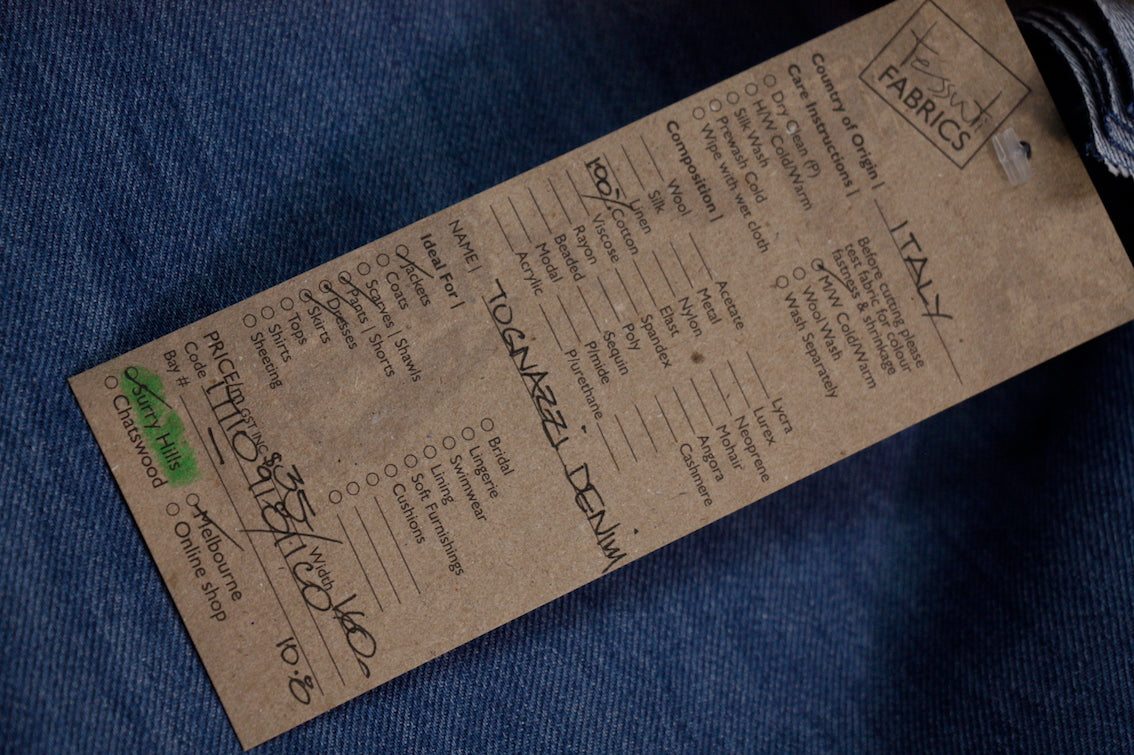 tessuti
FABRICS
Country of Origin | ITALY
Care Instructions |
Dry Clean (P)
H/W Cold/Warm
Silk Wash
Prewash Cold
Wipe with wet cloth
Before cutting please
test fabric for colour
fastness & shrinkage
M/W Cold/Warm
Wool Wash
Wash Separately
Composition |
Wool
Silk
Linen
100% Cotton
Viscose
Rayon
Beaded
Modal
Acrylic
Acetate
Metal
Nylon
Elast
Spandex
Poly
Sequin
P/mide
P/urethane
Lycra
Lurex
Neoprene
Mohair
Angora
Cashmere
NAME | TOGNAZZI DENIM
Ideal For |
Jackets
Coats
Scarves | Shawls
Pants | Shorts
Dresses
Skirts
Tops
Shirts
Sheeting
Bridal
Lingerie
Swimwear
Lining
Soft Furnishings
Cushions
PRICE/m GST INC $35/ Width 160
Code
Bay #
Surry Hills
Chatswood
Melbourne
Online shop
10.8